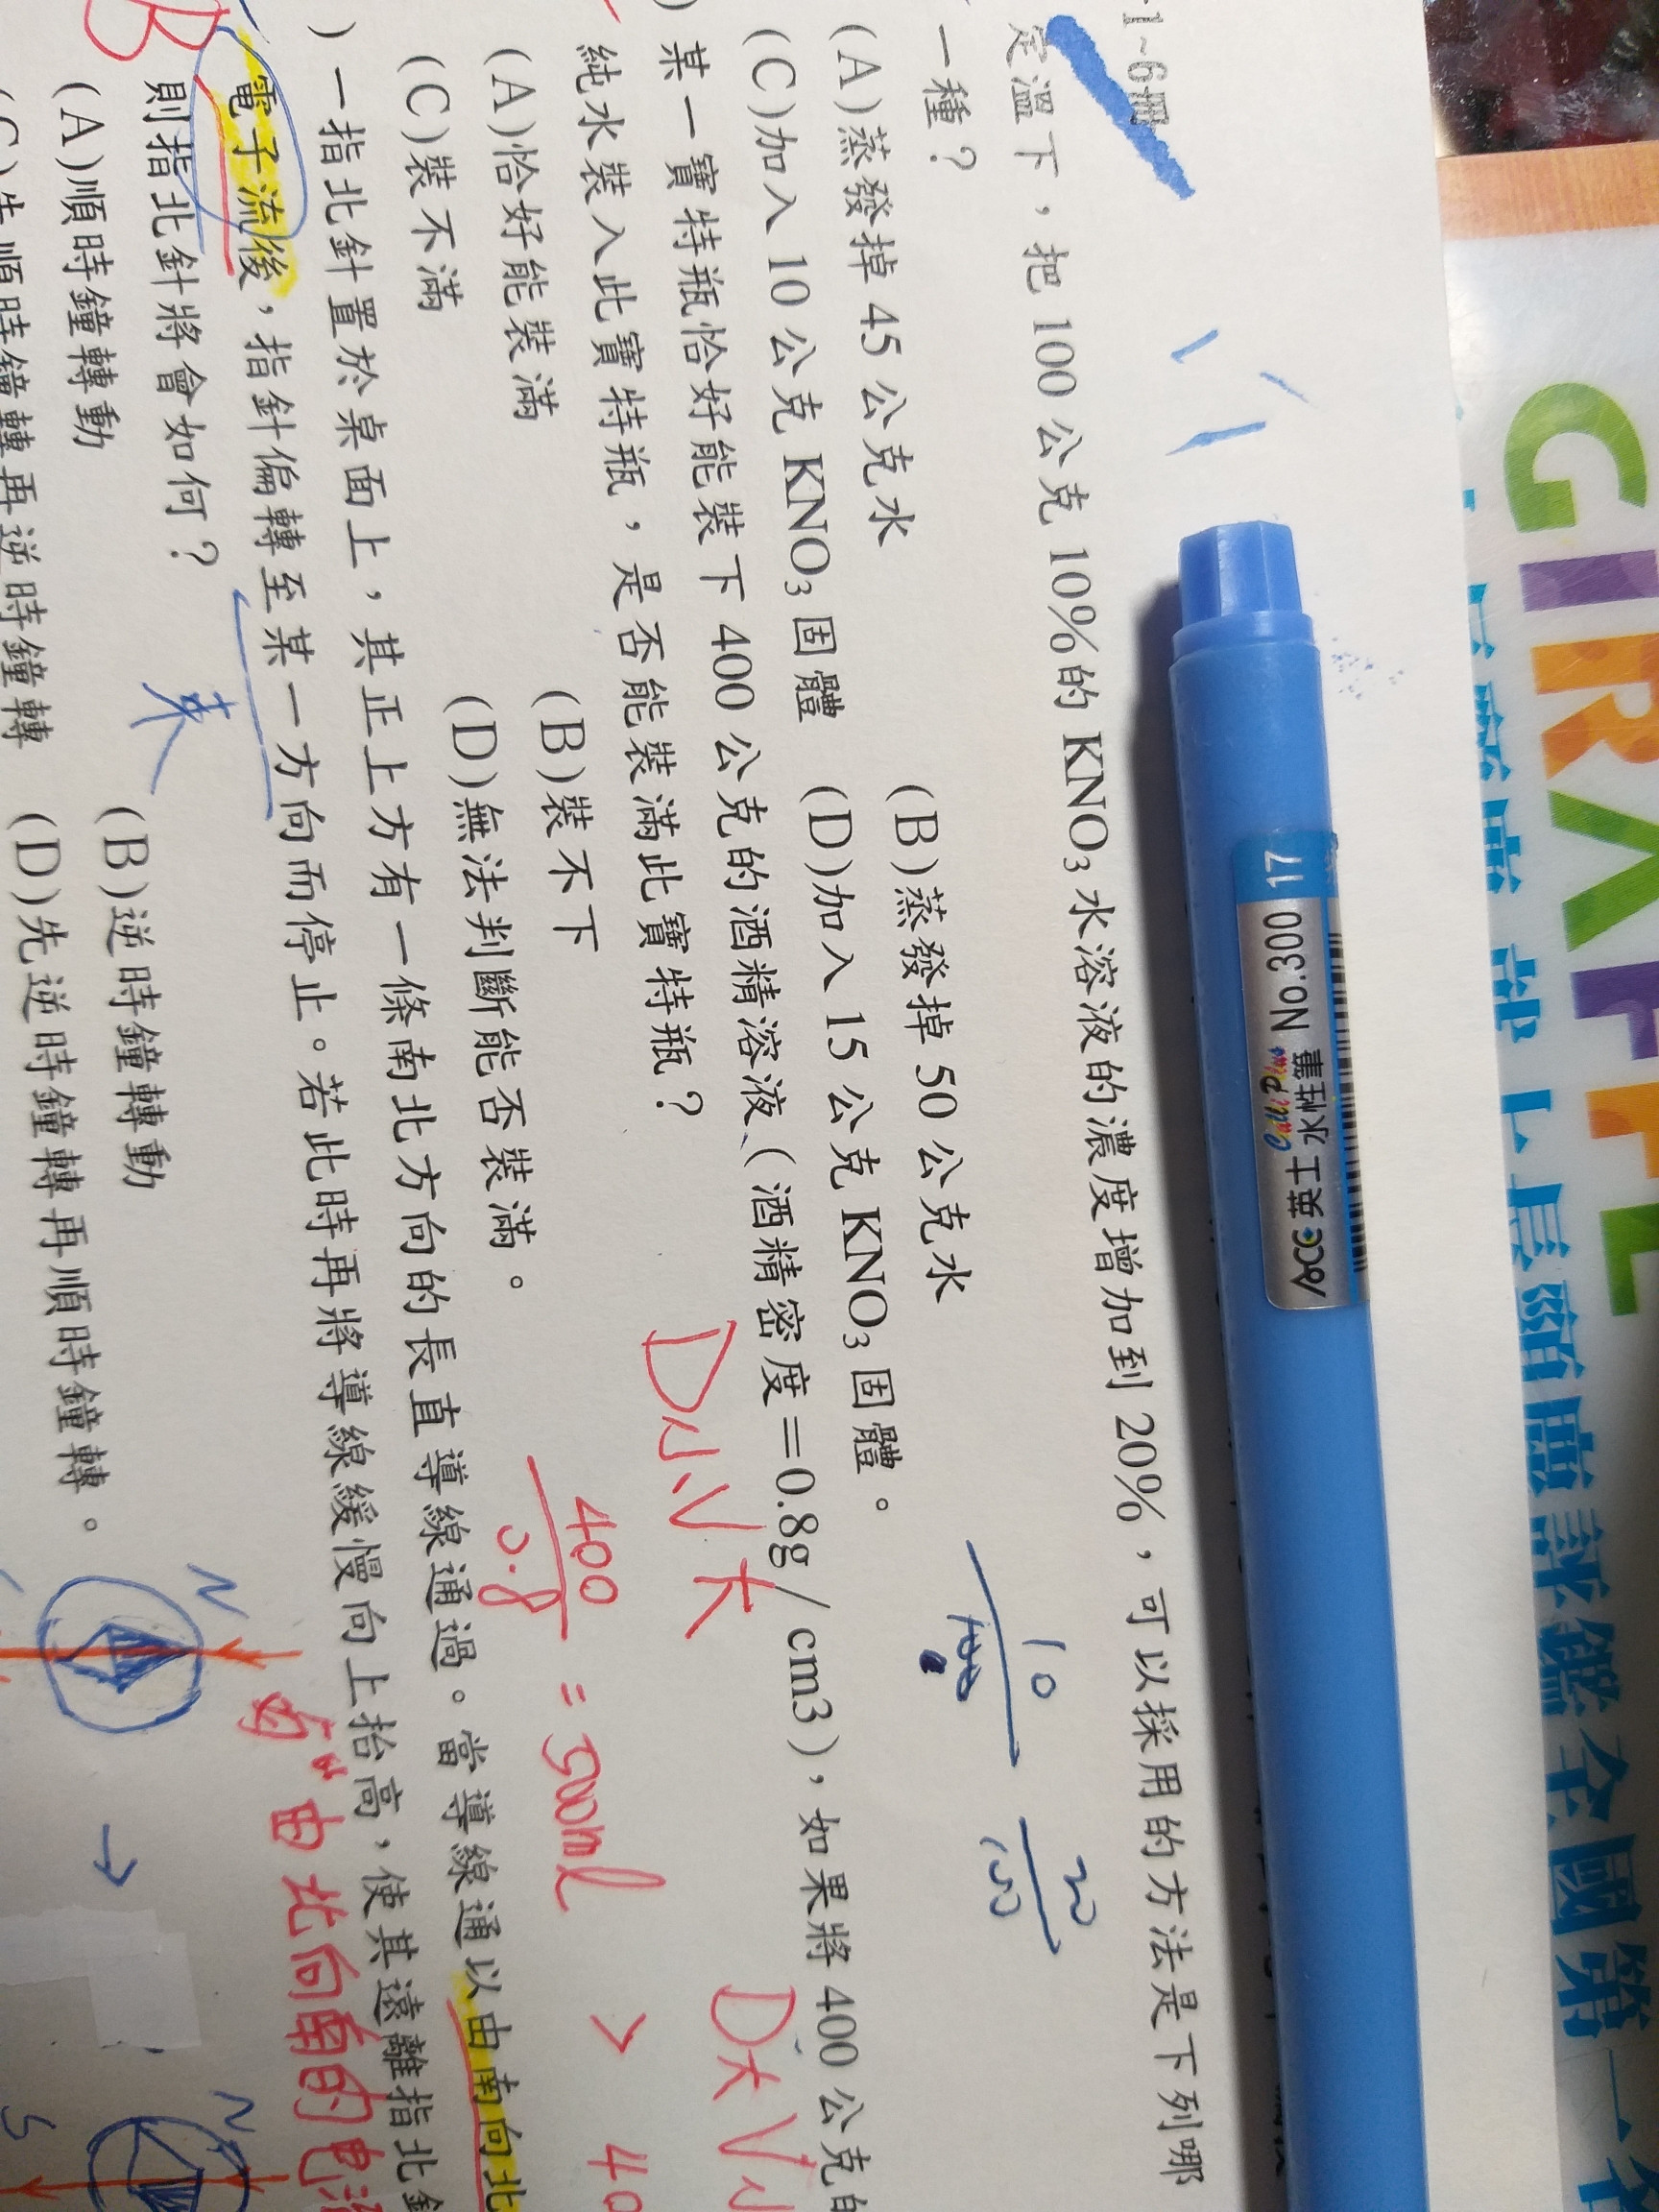 1~6冊
定溫下，把 100 公克 10%的 KNO3 水溶液的濃度增加到 20%，可以採用的方法是下列哪
一種？
(A)蒸發掉 45 公克水 (B)蒸發掉 50 公克水
(C)加入 10 公克 KNO3 固體 (D)加入 15 公克 KNO3 固體。
10
100
20
100
某一寶特瓶恰好能裝下 400 公克的酒精溶液(酒精密度＝0.8g/cm3)，如果將 400 公克的
純水裝入此寶特瓶，是否能裝滿此寶特瓶？
D小V大
(A)恰好能裝滿 (B)裝不下
(C)裝不滿 (D)無法判斷能否裝滿。
400
0.8
= 500ml > 40
)一指北針置於桌面上，其正上方有一條南北方向的長直導線通過。當導線通以由南向北
電子流後，指針偏轉至某一方向而停止。若此時再將導線緩慢向上抬高，使其遠離指北針
則指北針將會如何？
B
(A)順時鐘轉動 (B)逆時鐘轉動
(C)先順時鐘轉再逆時鐘轉 (D)先逆時鐘轉再順時鐘轉。
由北向南的電流
N
N
S
GIRAFFE
17
No.300
英士 水性筆
評鑑全國第一名